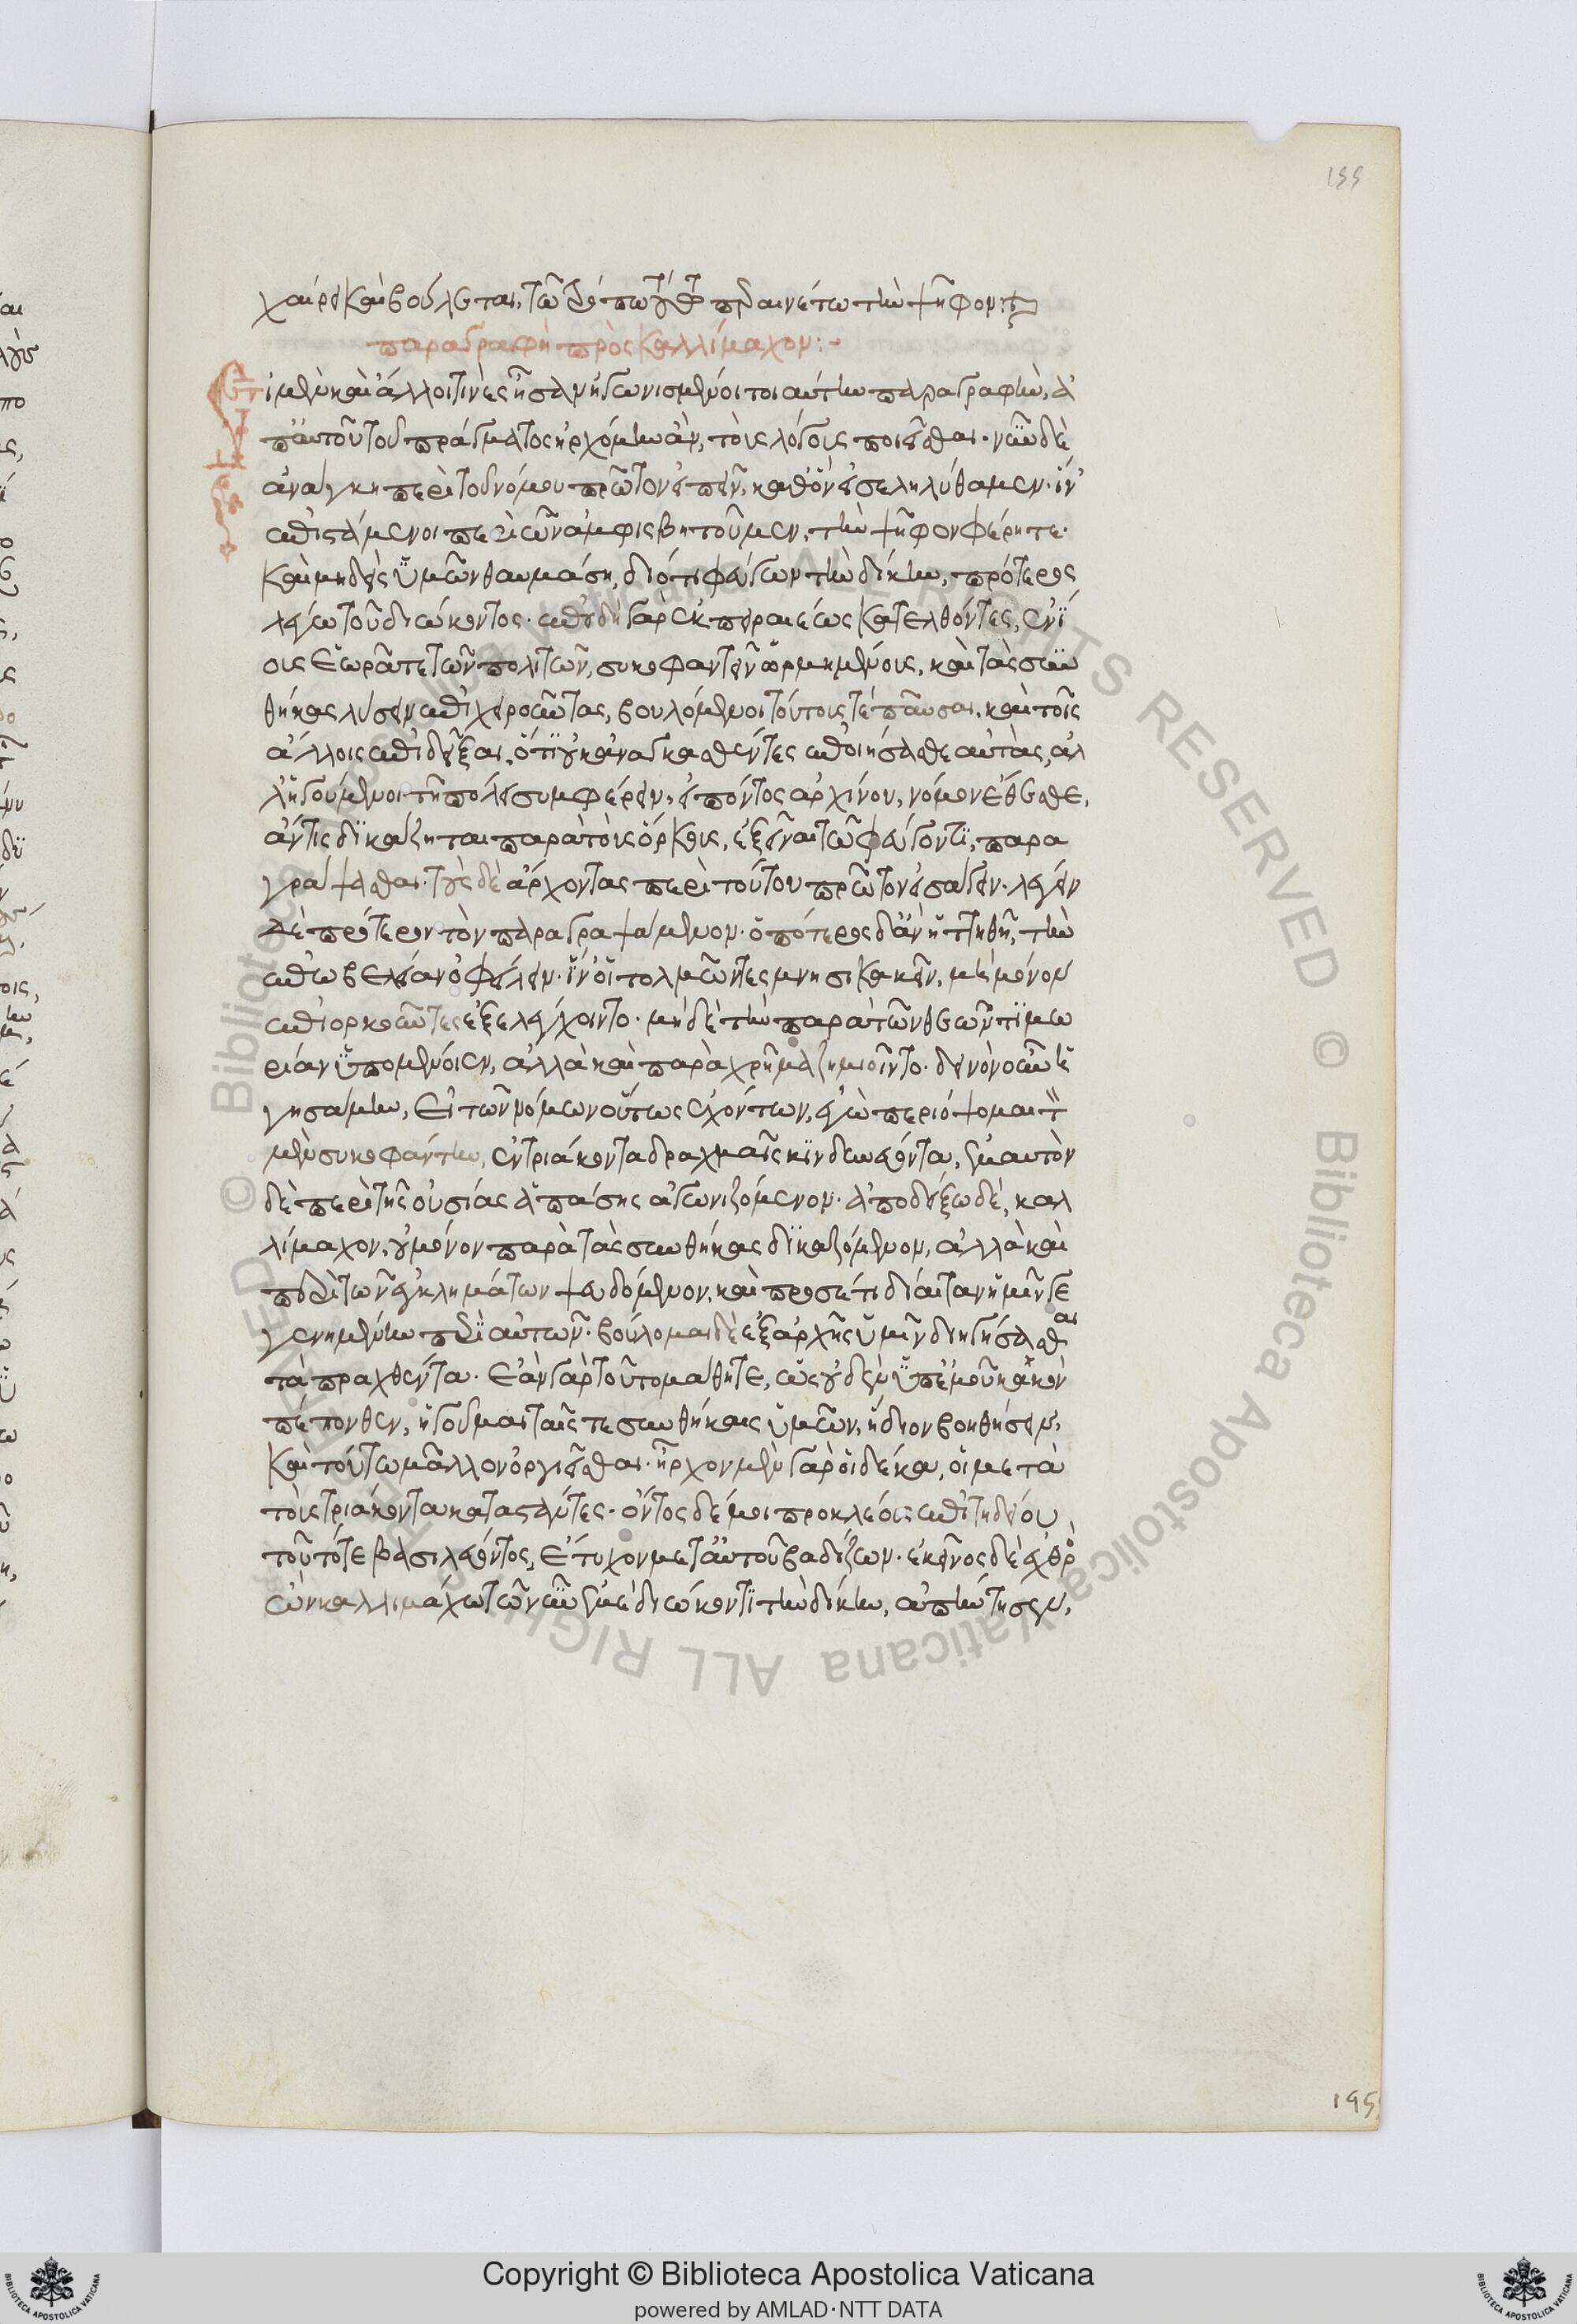 155
χαίρει καὶ βούλεται, τῷ δ' ἐπιγεγραφέτω τὴν ψῆφον:
παραγραφὴ πρὸς καλλίμαχον:-
Εἰ μὲν καὶ ἄλλοι τινὲς ἦσαν ἠγωνισμένοι τοιαύτην παραγραφὴν, ἀ
π' αὐτοῦ τοῦ πράγματος ἠρχόμην ἂν, τοὺς λόγους ποιεῖσθαι· νῦν δὲ
ἀνάγκη περὶ τοῦ νόμου πρῶτον εἰπεῖν, καθ' ὃν εἰσεληλύθαμεν· ἵν'
ἐπιστάμενοι περὶ ὧν ἀμφισβητοῦμεν, τὴν ψῆφον φέρητε·
καὶ μηδεὶς ὑμῶν θαυμάση, διότι φεύγων τὴν δίκην, πρότερος
λέγω τοῦ διώκοντος· ἐπειδὴ γὰρ ἐκ πειραιέως κατελθόντες, ἐνί
οις ἑωρᾶτε τῶν πολιτῶν, συκοφαντεῖν ὡρμημένους, καὶ τὰς συν
θήκας λύειν ἐπιχειροῦντας, βουλόμενοι τούτους τε παῦσαι, καὶ τοῖς
ἄλλοις ἐπιδεῖξαι, ὅτι οὐκ ἀναγκασθέντες ἐποιήσασθε αὐτὰς, ἀλ
λ' ἡγούμενοι τῆ πόλει συμφέρειν, εἰπόντος ἀρχίνου, νόμον ἔθεσθε,
ἄν τις δικάζηται παρὰ τοὺς ὅρκους, ἐξεῖναι τῶ φεύγοντι, παρα
γράψασθαι· τοὺς δὲ ἄρχοντας περὶ τούτου πρῶτον εἰσάγειν· λέγειν
δὲ πρότερον τὸν παραγραψάμενον· ὁπότερος δ' ἂν ἡττηθῆ, τὴν
ἐπωβελίαν ὀφείλειν· ἵν' οἱ τολμῶντες μνησικακεῖν, μὴ μόνον
ἐπιορκοῦντες ἐξελέγχοιντο· μηδὲ τὴν παρὰ τῶν θεῶν τιμω
ρίαν ὑπομένοιεν, ἀλλὰ καὶ παραχρῆμα ζημιοῖντο· δεινὸν οὖν ἡ
γησάμην, εἰ τῶν νόμων οὕτως ἐχόντων, ἐγὼ περιόψομαι τὸν
μὲν συκοφάντην, ἐν τριάκοντα δραχμαῖς κινδυνεύοντα, ἐμαυτὸν
δὲ περὶ τῆς οὐσίας ἁπάσης ἀγωνιζόμενον· ἀποδείξω δὲ, καλ
λίμαχον, οὐ μόνον παρὰ τὰς συνθήκας δικαζόμενον, ἀλλὰ καὶ
περὶ τῶν ἐγκλημάτων ψευδόμενον, καὶ προσέτι δίαιταν ἡμῖν γε
γενημένην περὶ αὐτῶν· βούλομαι δὲ ἐξ ἀρχῆς ὑμῖν διηγήσασθαι
τὰ πραχθέντα· ἐὰν γὰρ τοῦτο μάθητε, ὡς οὐδὲν ὑπ' ἐμοῦ κακὸν
πέπονθεν, ἡγοῦμαι ταῖς τε συνθήκαις ὑμῶν, ἥδιον βοηθήσειν,
καὶ τούτω μᾶλλον ὀργιεῖσθαι· ἦρχον μὲν γὰρ οἱ δέκα, οἱ μετὰ
τοὺς τριάκοντα καταστάντες· ὄντος δέ μοι πατροκλέους ἐπιτηδείου,
τοῦ τότε βασιλεύοντος, ἔτυχον μετ' αὐτοῦ βαδίζων· ἐκεῖνος δὲ ἐχθρὸς
ὢν καλλιμάχω τῶ νῦν ἐμὲ διώκοντι τὴν δίκην, ἀπήντησεν,
195
Copyright © Biblioteca Apostolica Vaticana
powered by AMLAD·NTT DATA